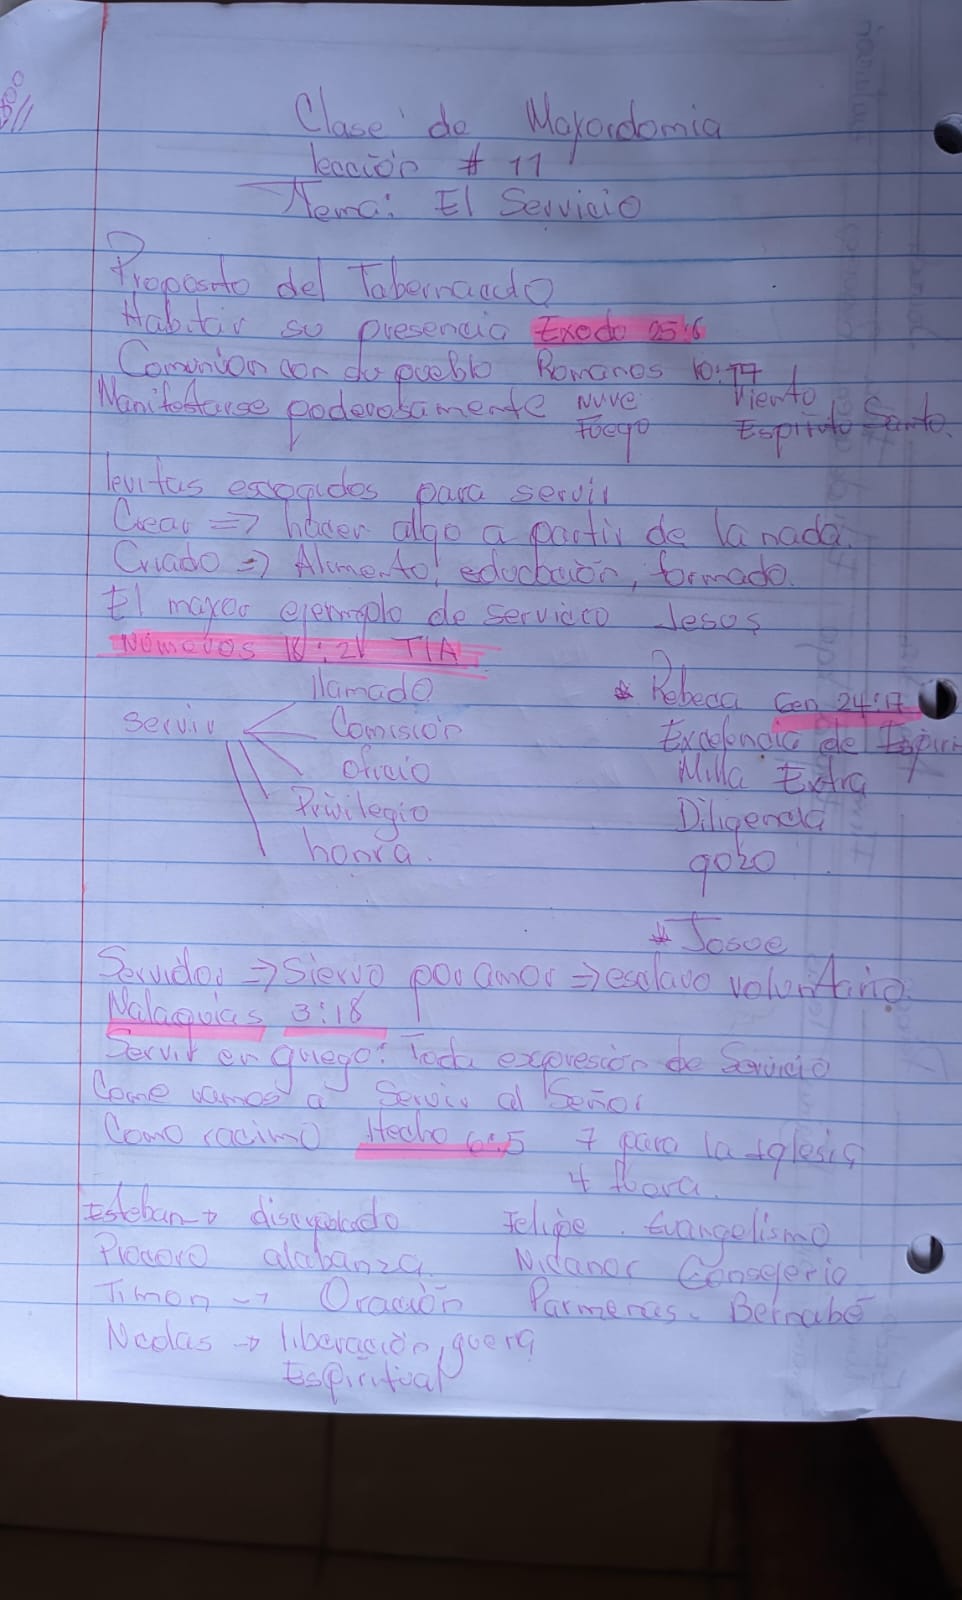 Clase de Mayordomia
lección # 11
Tema: El Servicio
Proposito del Tabernaculo
Habitar su presencia Exodo 25:8
Comunion con du pueblo Romanos 10:17
Manifestarse poderosamente nuve Viento
Fuego Espiritu Santo.
levitas escogidos para servir
Crear => hacer algo a partir de la nada.
Criado => Alimento, educación, formado.
El mayor ejemplo de servicio Jesus
Números 18:21 TLA
llamado * Rebeca Gen 24:17
servir Comision Excelencia de Espiri
oficio Milla Extra
Privilegio Diligencia
honra. gozo
* Josue
Servidor => Siervo por amor => esclavo voluntario.
Malaquias 3:18
Servir en griego: Toda expresión de Servicio
Come vamos a Servir al Señor
Como racimo Hecho 6:5 7 para la Iglesia
4 fuera.
Esteban -> discipulado Felipe. Evangelismo
Procoro alabanza Nicanor Consejerio
Timon -> Oración Parmenas. Bernabé
Nicolas -> liberación, guerra
Espiritual